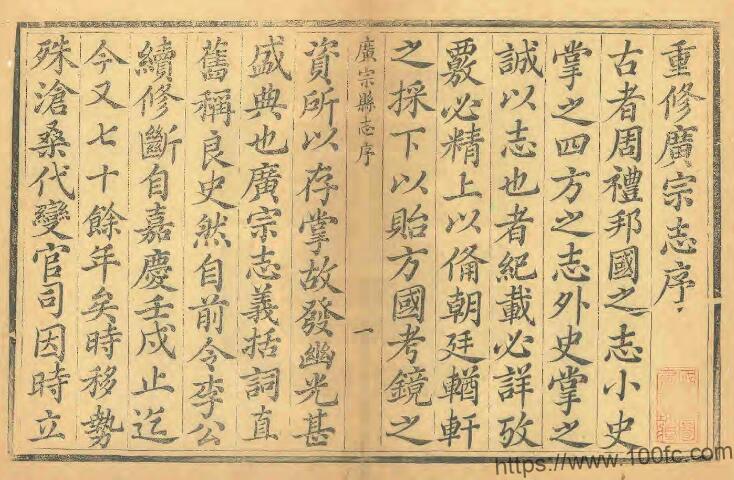 重修廣宗志序
古者周禮邦國之志小史
掌之四方之志外史掌之
誠以志也者紀載必詳攷
覈必精上以偹朝廷輶軒
之採下以貽方國考鏡之
廣宗縣志序
一
資所以存掌故發幽光甚
盛典也廣宗志義括詞直
舊稱良史然自前令李公
續修斷自嘉慶壬戌止迄
今又七十餘年矣時移勢
殊滄桑代變官司因時立
https://www.100fc.com